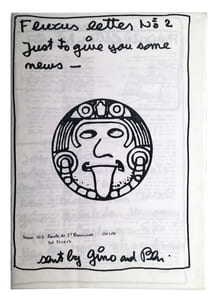 Fluxus letter No 2
Just to give you some
news —
sent by Gino and Ben.